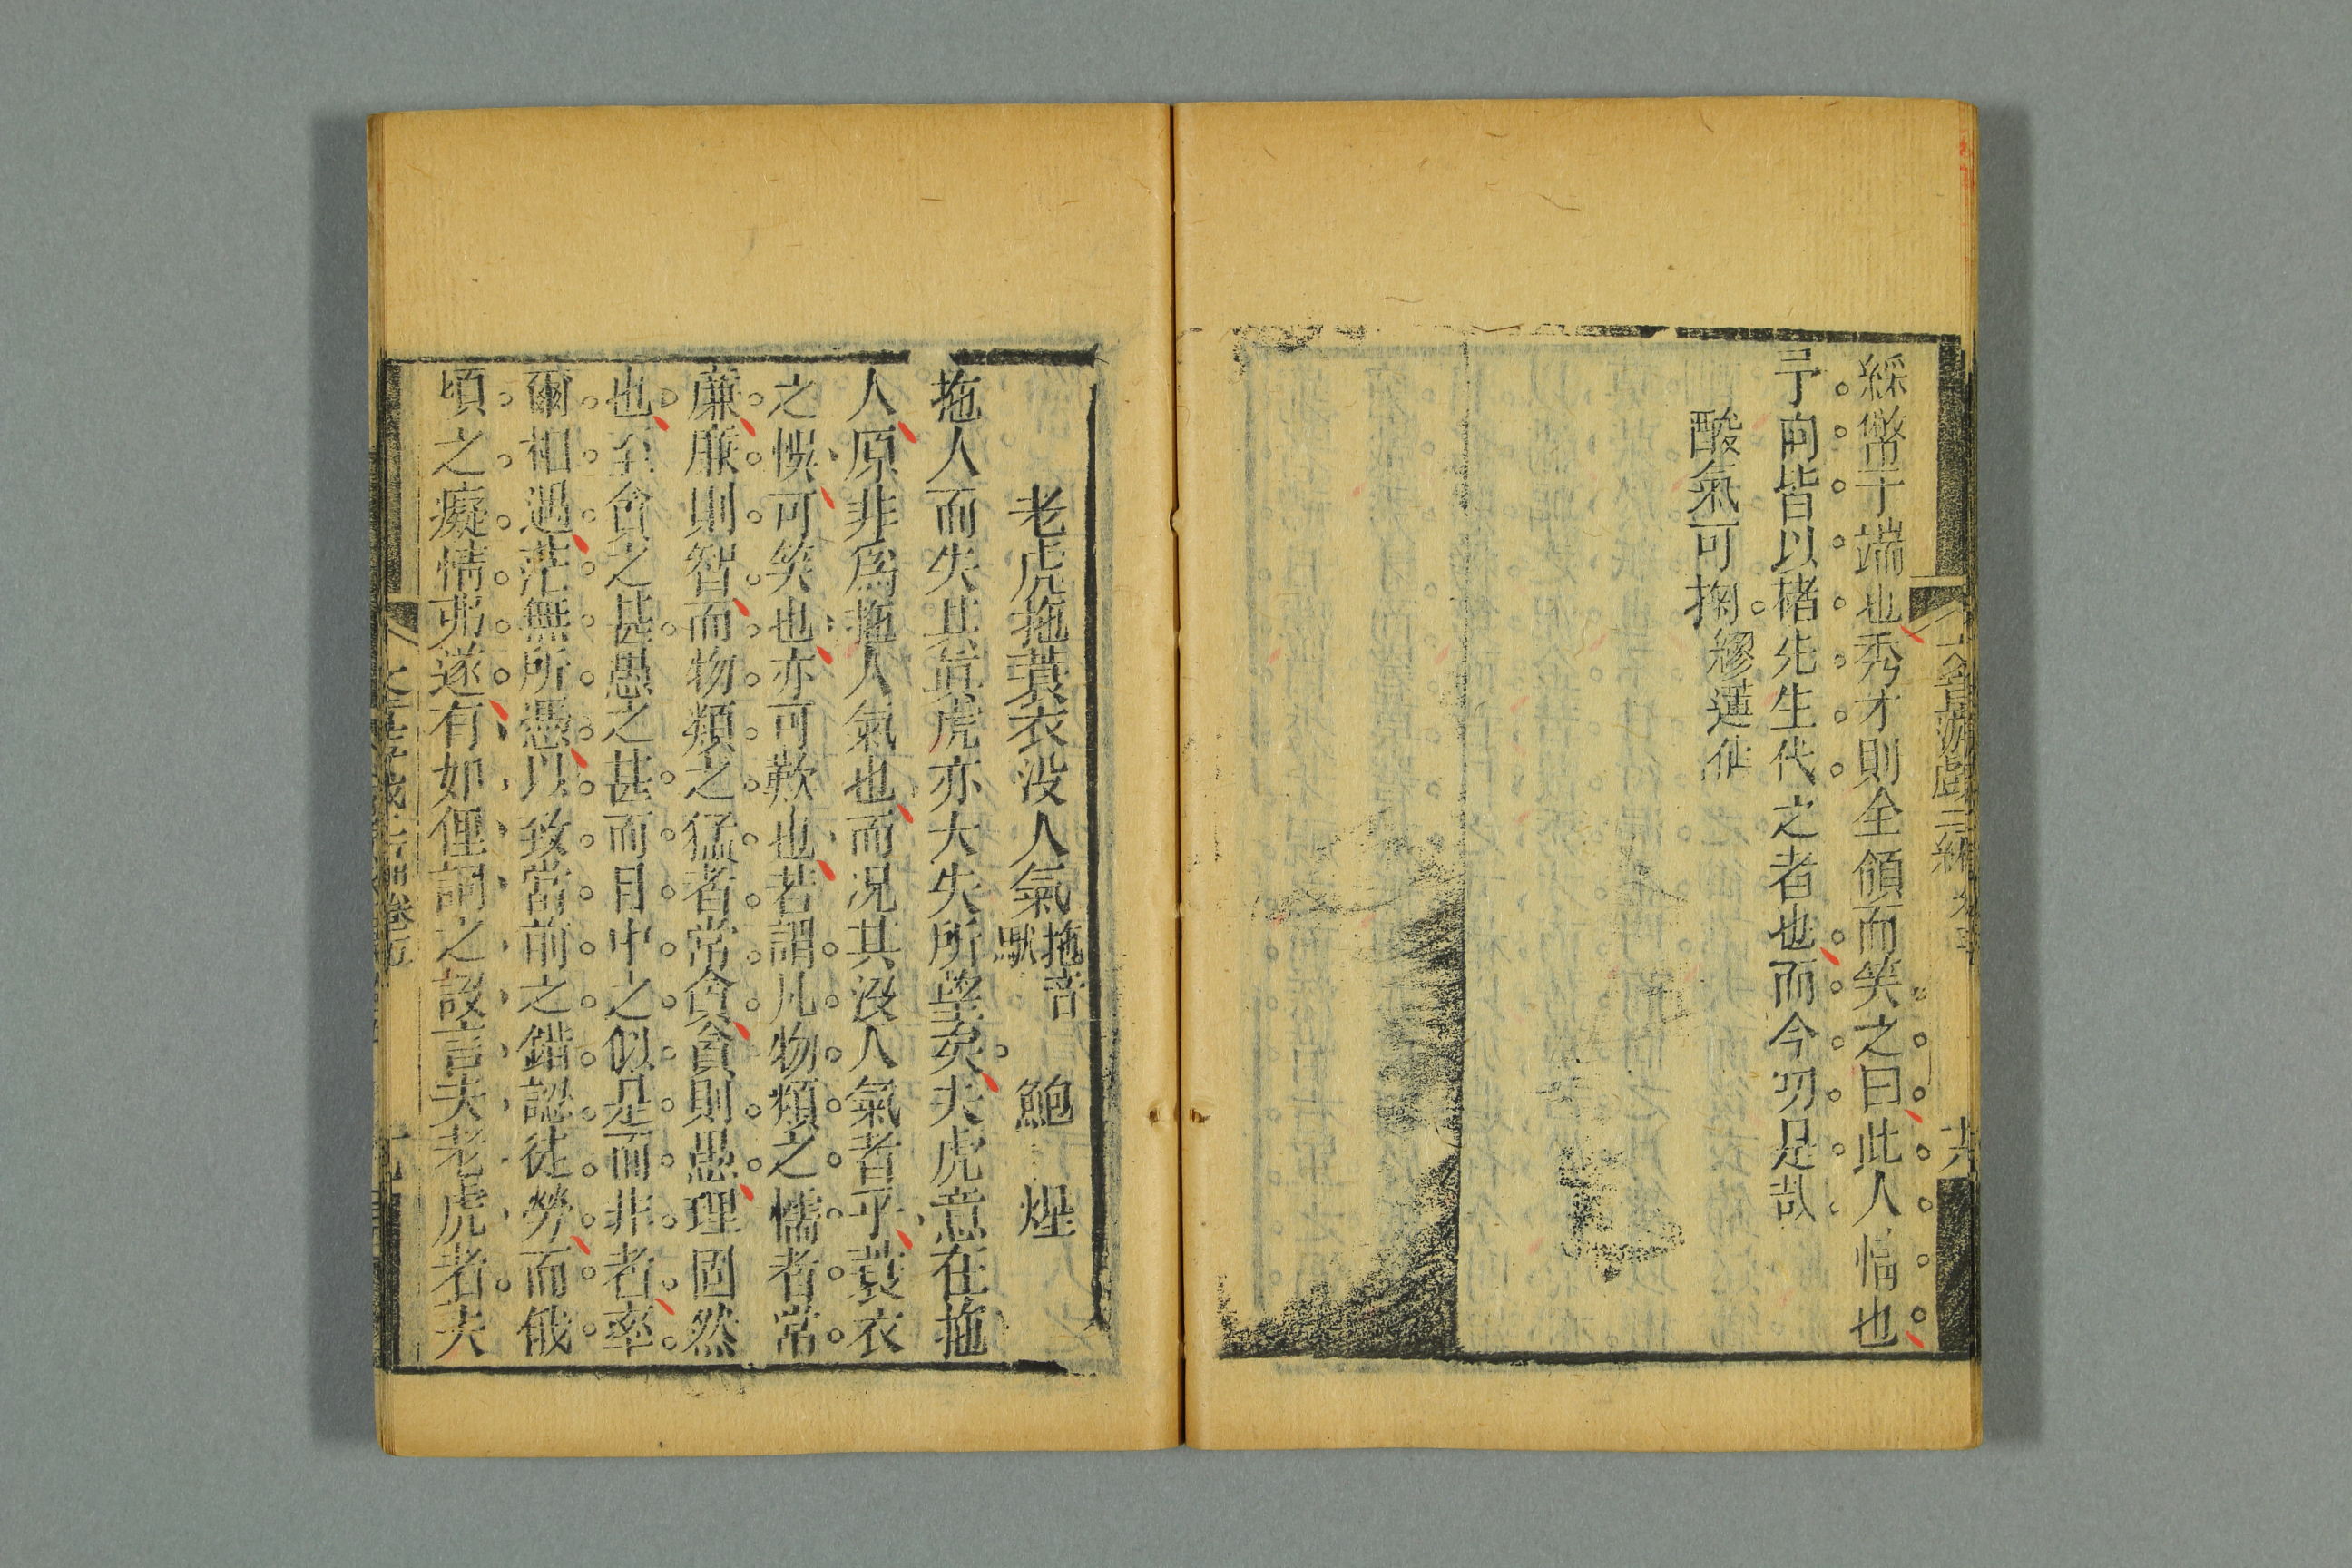 文章游戲二編
綵幣于端也秀才則全領而笑之曰此人情也
予向皆以楮先生代之者也而今叨足哉
酸氣可掬 繆蓮仙
老虎拖蓑衣没人氣 拖音馱 鮑 煋
拖人而失其真虎亦大失所望矣夫虎意在拖
人原非爲拖人氣也而况其没人氣者乎蓑衣
之悞可笑也亦可歎也若謂凡物類之懦者常
廉廉則智而物類之猛者常貪貪則愚理固然
也至貪之甚愚之甚而目中之似是而非者率
爾相遇茫無所憑以致當前之錯認徒勞而俄
頃之癡情弗遂有如俚詞之諺言夫老虎者夫